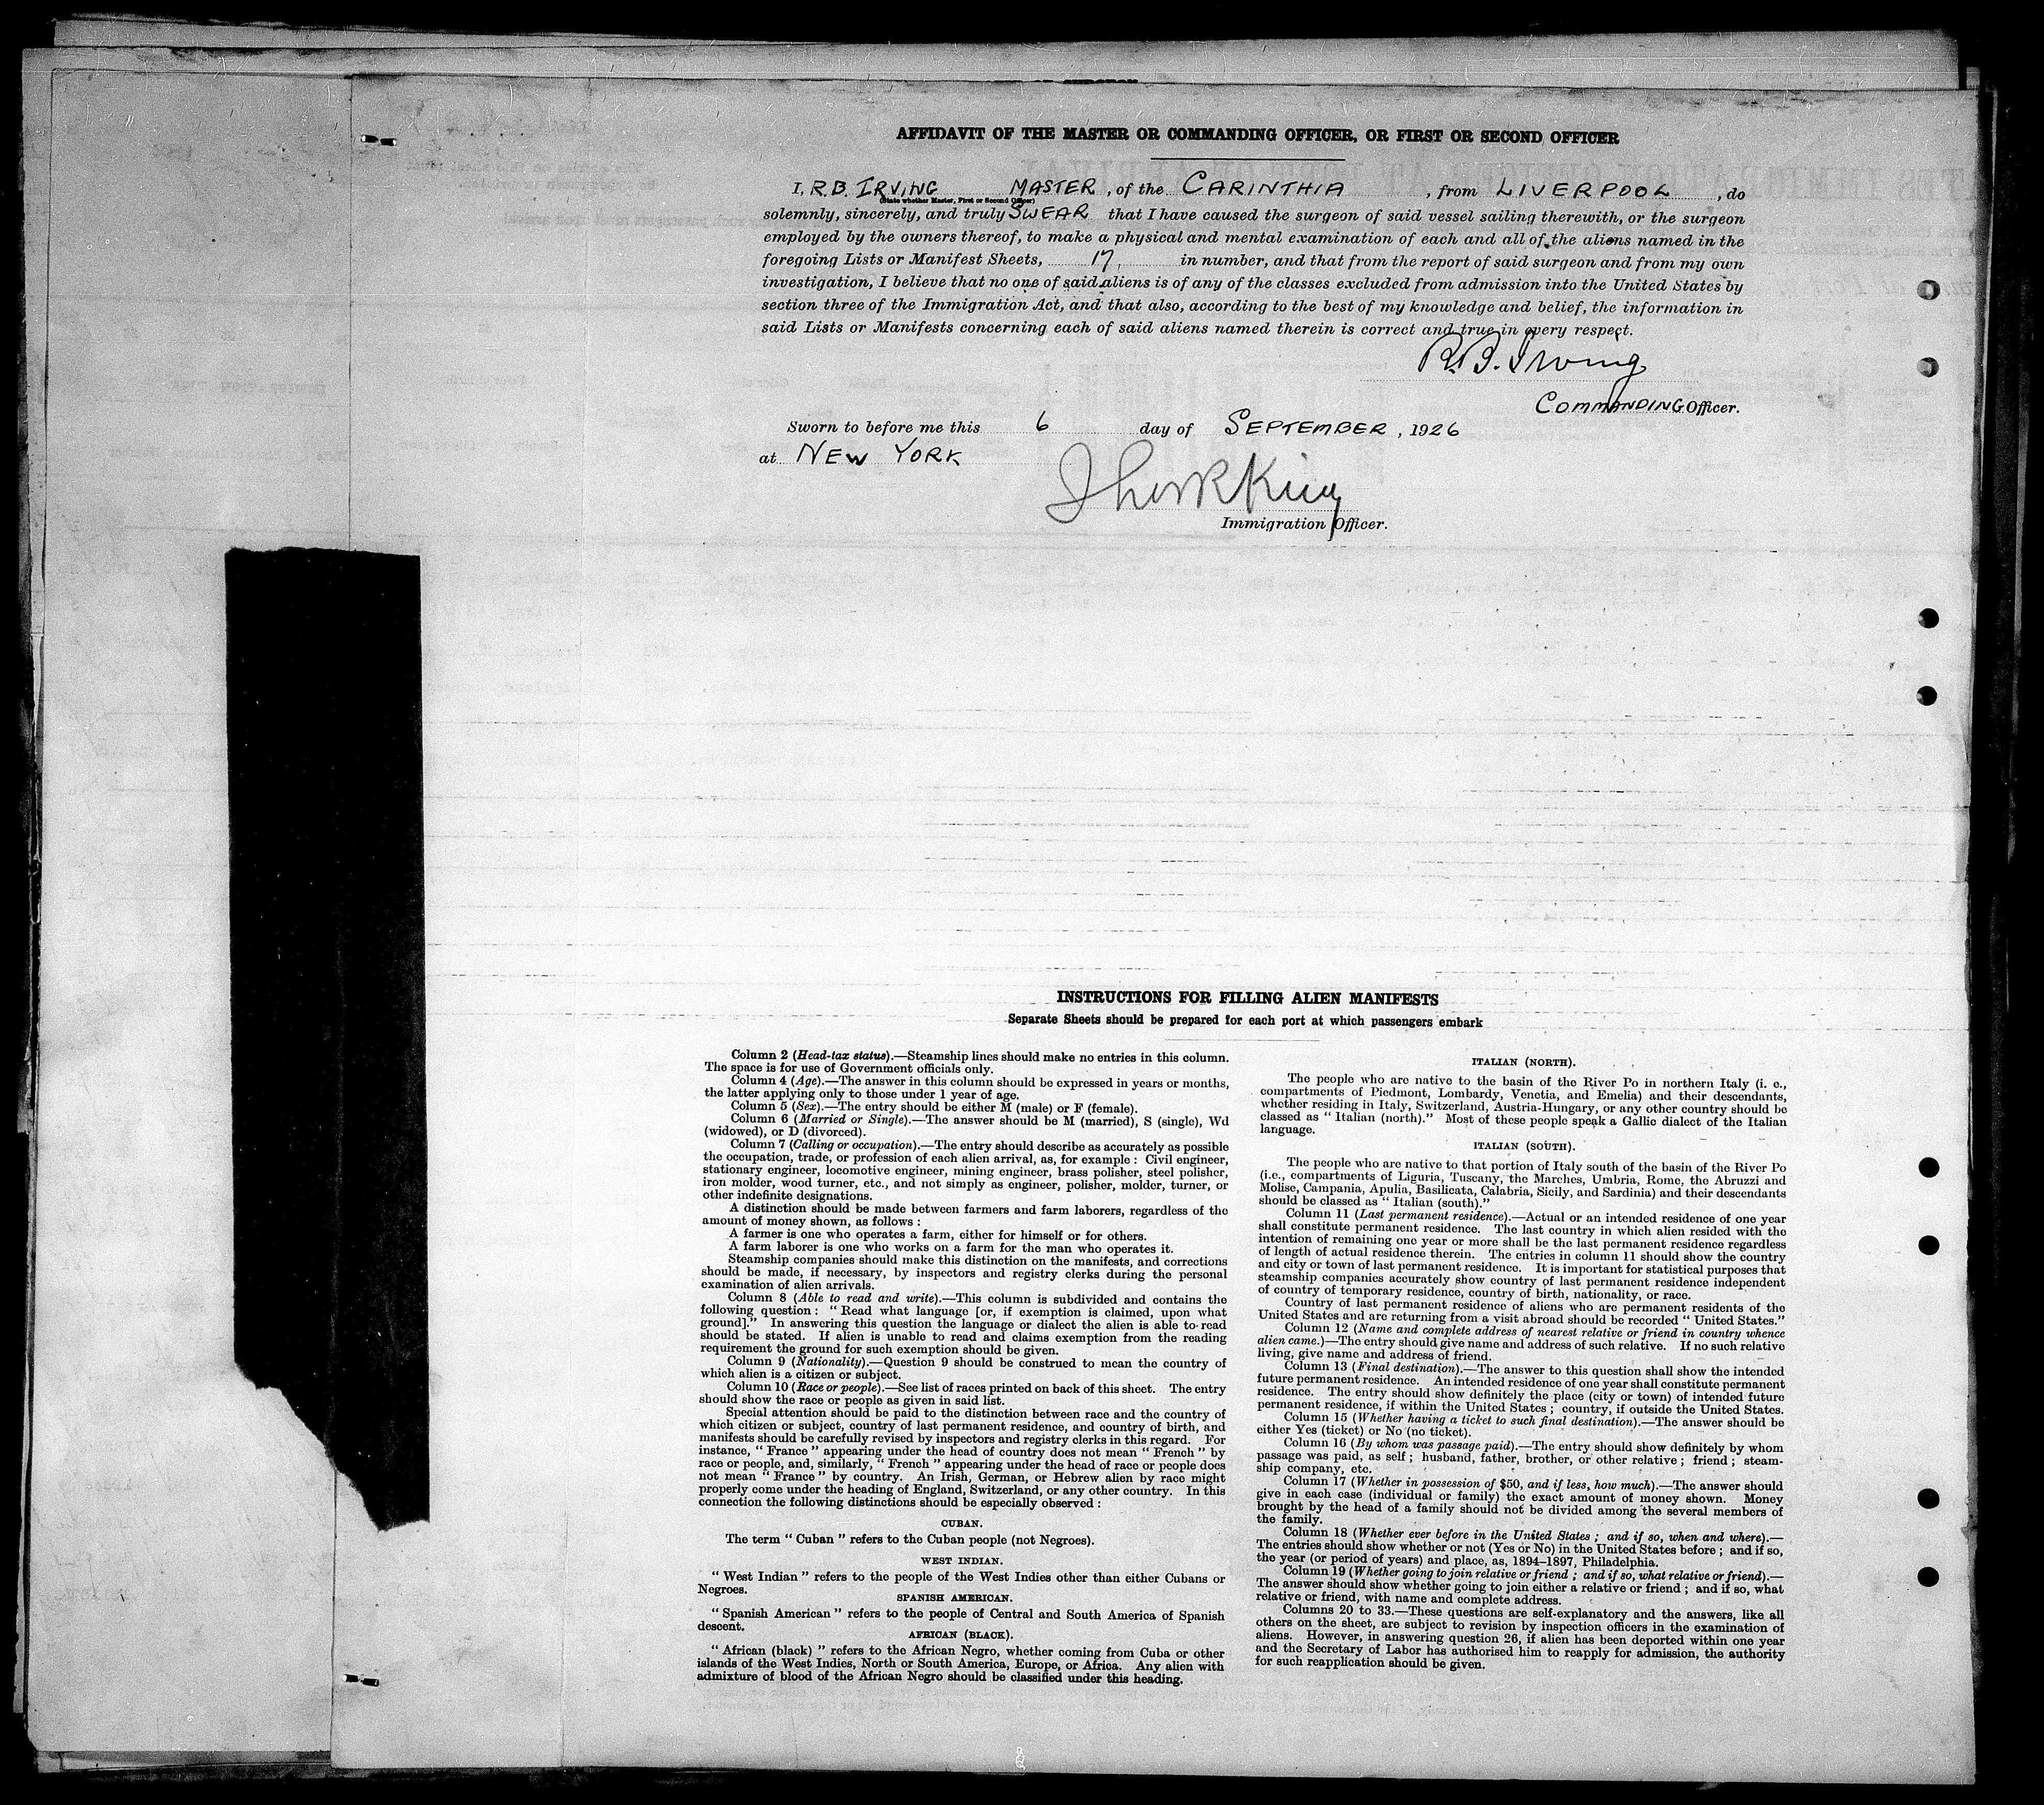 AFFIDAVIT OF THE MASTER OR COMMANDING OFFICER, OR FIRST OR SECOND OFFICER
I, R.B. IRVING MASTER, of the CARINTHIA, from LIVERPOOL, do
(State whether Master, First or Second Officer)
solemnly, sincerely, and truly SWEAR that I have caused the surgeon of said vessel sailing therewith, or the surgeon
employed by the owners thereof, to make a physical and mental examination of each and all of the aliens named in the
foregoing Lists or Manifest Sheets, 17 in number, and that from the report of said surgeon and from my own
investigation, I believe that no one of said aliens is of any of the classes excluded from admission into the United States by
section three of the Immigration Act, and that also, according to the best of my knowledge and belief, the information in
said Lists or Manifests concerning each of said aliens named therein is correct and true in every respect.
R.B. Irving
COMMANDING Officer.
Sworn to before me this 6 day of SEPTEMBER, 1926
at NEW YORK
Immigration Officer.
INSTRUCTIONS FOR FILLING ALIEN MANIFESTS
Separate Sheets should be prepared for each port at which passengers embark
Column 2 (Head-tax status).—Steamship lines should make no entries in this column.
The space is for use of Government officials only.
Column 4 (Age).—The answer in this column should be expressed in years or months,
the latter applying only to those under 1 year of age.
Column 5 (Sex).—The entry should be either M (male) or F (female).
Column 6 (Married or Single).—The answer should be M (married), S (single), Wd
(widowed), or D (divorced).
Column 7 (Calling or occupation).—The entry should describe as accurately as possible
the occupation, trade, or profession of each alien arrival, as, for example : Civil engineer,
stationary engineer, locomotive engineer, mining engineer, brass polisher, steel polisher,
iron molder, wood turner, etc., and not simply as engineer, polisher, molder, turner, or
other indefinite designations.
A distinction should be made between farmers and farm laborers, regardless of the
amount of money shown, as follows :
A farmer is one who operates a farm, either for himself or for others.
A farm laborer is one who works on a farm for the man who operates it.
Steamship companies should make this distinction on the manifests, and corrections
should be made, if necessary, by inspectors and registry clerks during the personal
examination of alien arrivals.
Column 8 (Able to read and write).—This column is subdivided and contains the
following question : " Read what language [or, if exemption is claimed, upon what
ground]." In answering this question the language or dialect the alien is able to read
should be stated. If alien is unable to read and claims exemption from the reading
requirement the ground for such exemption should be given.
Column 9 (Nationality).—Question 9 should be construed to mean the country of
which alien is a citizen or subject.
Column 10 (Race or people).—See list of races printed on back of this sheet. The entry
should show the race or people as given in said list.
Special attention should be paid to the distinction between race and the country of
which citizen or subject, country of last permanent residence, and country of birth, and
manifests should be carefully revised by inspectors and registry clerks in this regard. For
instance, " France " appearing under the head of country does not mean " French " by
race or people, and, similarly, " French " appearing under the head of race or people does
not mean " France " by country. An Irish, German, or Hebrew alien by race might
properly come under the heading of England, Switzerland, or any other country. In this
connection the following distinctions should be especially observed :
CUBAN.
The term " Cuban " refers to the Cuban people (not Negroes).
WEST INDIAN.
" West Indian " refers to the people of the West Indies other than either Cubans or
Negroes.
SPANISH AMERICAN.
" Spanish American " refers to the people of Central and South America of Spanish
descent.
AFRICAN (BLACK).
" African (black) " refers to the African Negro, whether coming from Cuba or other
islands of the West Indies, North or South America, Europe, or Africa. Any alien with
admixture of blood of the African Negro should be classified under this heading.
ITALIAN (NORTH).
The people who are native to the basin of the River Po in northern Italy (i. e.,
compartments of Piedmont, Lombardy, Venetia, and Emelia) and their descendants,
whether residing in Italy, Switzerland, Austria-Hungary, or any other country should be
classed as " Italian (north)." Most of these people speak a Gallic dialect of the Italian
language.
ITALIAN (SOUTH).
The people who are native to that portion of Italy south of the basin of the River Po
(i.e., compartments of Liguria, Tuscany, the Marches, Umbria, Rome, the Abruzzi and
Molise, Campania, Apulia, Basilicata, Calabria, Sicily, and Sardinia) and their descendants
should be classed as " Italian (south)."
Column 11 (Last permanent residence).—Actual or an intended residence of one year
shall constitute permanent residence. The last country in which alien resided with the
intention of remaining one year or more shall be the last permanent residence regardless
of length of actual residence therein. The entries in column 11 should show the country
and city or town of last permanent residence. It is important for statistical purposes that
steamship companies accurately show country of last permanent residence independent
of country of temporary residence, country of birth, nationality, or race.
Country of last permanent residence of aliens who are permanent residents of the
United States and are returning from a visit abroad should be recorded " United States."
Column 12 (Name and complete address of nearest relative or friend in country whence
alien came.)—The entry should give name and address of such relative. If no such relative
living, give name and address of friend.
Column 13 (Final destination).—The answer to this question shall show the intended
future permanent residence. An intended residence of one year shall constitute permanent
residence. The entry should show definitely the place (city or town) of intended future
permanent residence, if within the United States ; country, if outside the United States.
Column 15 (Whether having a ticket to such final destination).—The answer should be
either Yes (ticket) or No (no ticket).
Column 16 (By whom was passage paid).—The entry should show definitely by whom
passage was paid, as self ; husband, father, brother, or other relative ; friend ; steam-
ship company, etc.
Column 17 (Whether in possession of $50, and if less, how much).—The answer should
give in each case (individual or family) the exact amount of money shown. Money
brought by the head of a family should not be divided among the several members of
the family.
Column 18 (Whether ever before in the United States ; and if so, when and where).—
The entries should show whether or not (Yes or No) in the United States before ; and if so,
the year (or period of years) and place, as, 1894–1897, Philadelphia.
Column 19 (Whether going to join relative or friend ; and if so, what relative or friend).—
The answer should show whether going to join either a relative or friend ; and if so, what
relative or friend, with name and complete address.
Columns 20 to 33.—These questions are self-explanatory and the answers, like all
others on the sheet, are subject to revision by inspection officers in the examination of
aliens. However, in answering question 26, if alien has been deported within one year
and the Secretary of Labor has authorised him to reapply for admission, the authority
for such reapplication should be given.